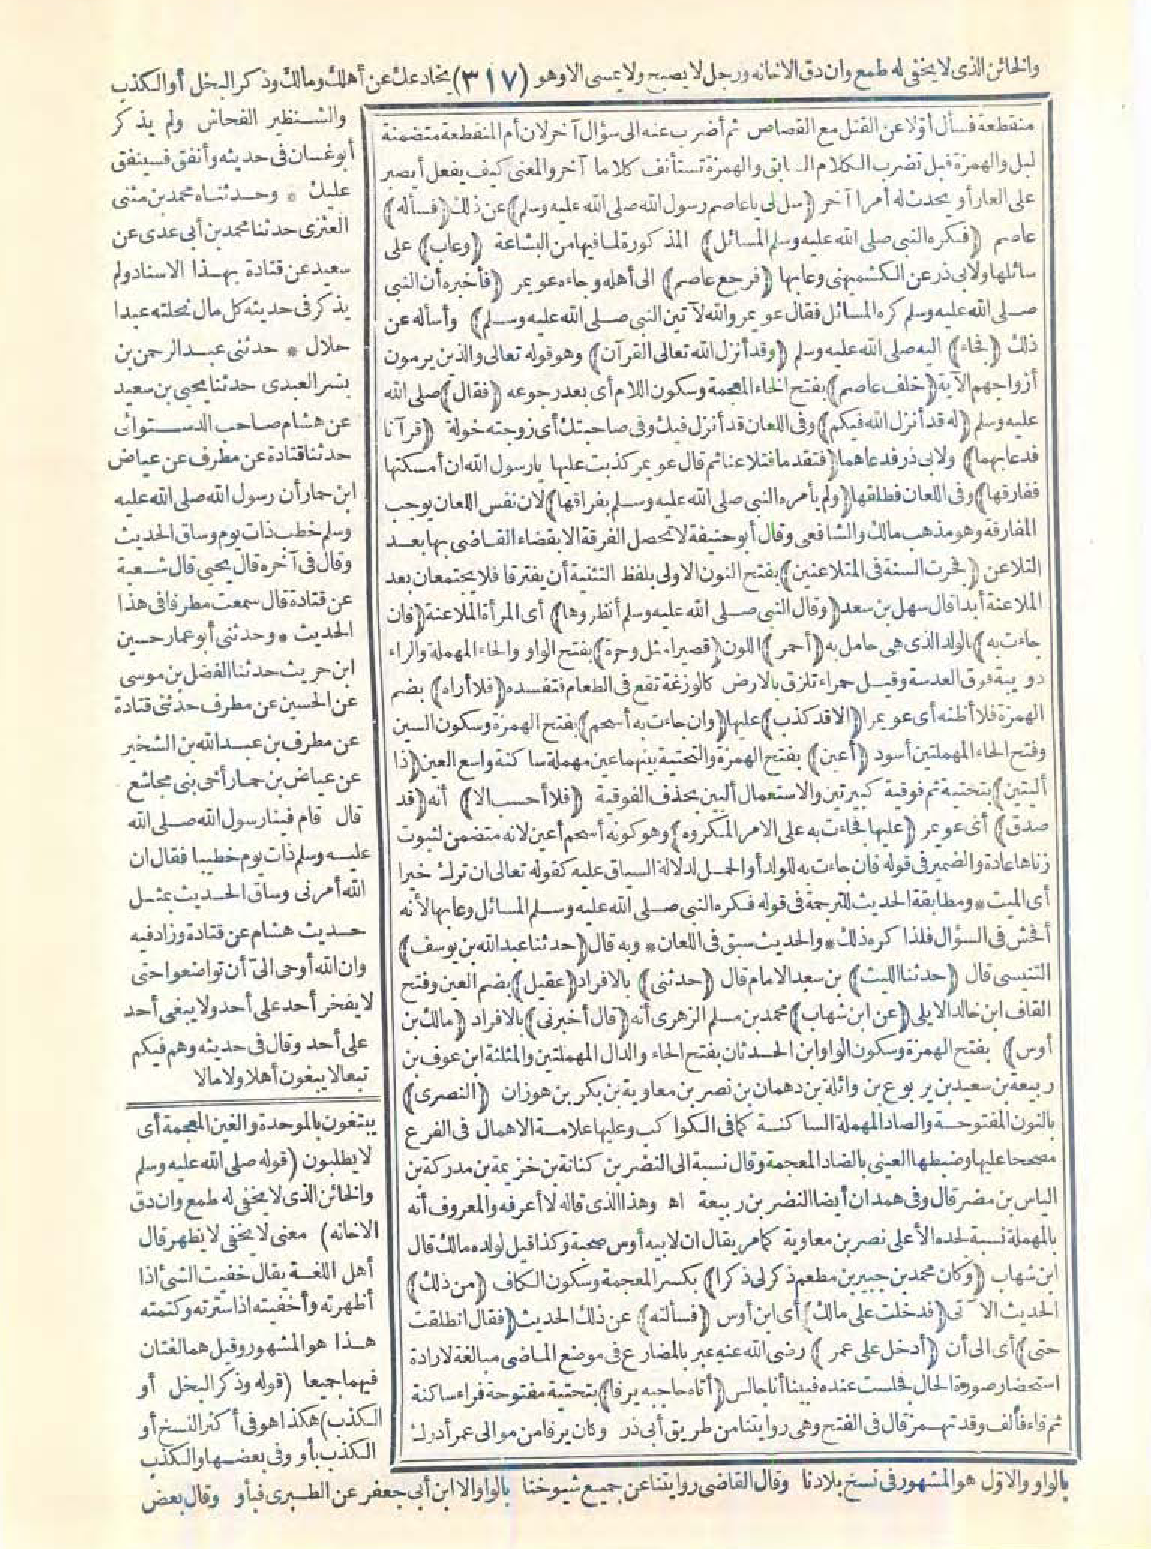 والخائن الذى لا يخفى له طمع وان دق الاخانه ورجل لا يصبح ولا يمسى الا وهو (٣١٧) يخادعك عن أهلك ومالك وذكر البخل أو الكذب
منقطعة فسأل أولا عن القتل مع القصاص ثم أضرب عنه الى سؤال آخر لان أم المنقطعة متضمنة
لبل والهمزة فبل تضرب الكلام السابق والهمزة تستأنف كلاما آخر والمعنى كيف يفعل أيصبر
على العار أو يحدث له أمرا آخر (سل لى يا عاصم رسول الله صلى الله عليه وسلم) عن ذلك (فسأله)
عاصم (فكره النبى صلى الله عليه وسلم المسائل) المذكورة لما فيها من البشاعة (وعاب) على
سائلها ولابى ذر عن الكشميهنى وعابها (فرجع عاصم) الى أهله وجاءه عويمر (فأخبره أن النبى
صلى الله عليه وسلم كره المسائل فقال عويمر والله لآتين النبى صلى الله عليه وسلم) وأسأله عن
ذلك (فجاء) اليه صلى الله عليه وسلم (وقد أنزل الله تعالى القرآن) وهو قوله تعالى والذين يرمون
أزواجهم الآية (خلف عاصم) بفتح الخاء المعجمة وسكون اللام أى بعد رجوعه (فقال) صلى الله
عليه وسلم (له قد أنزل الله فيكم) وفى اللعان قد أنزل فيك وفى صاحبتك أى زوجته خولة (قرآنا
فدعا بهما) ولابى ذر فدعاهما (فتقدما فتلاعنا ثم قال عويمر كذبت عليها يا رسول الله ان أمسكتها
ففارقها) وفى اللعان فطلقها (ولم يأمره النبى صلى الله عليه وسلم بفراقها) لان نفس اللعان يوجب
المفارقة وهو مذهب مالك والشافعى وقال أبو حنيفة لا تحصل الفرقة الا بقضاء القاضى بها بعد
التلاعن (فجرت السنة فى المتلاعنين) بفتح النون الاولى بلفظ التثنية أن يفترقا فلا يجتمعان بعد
الملاعنة أبدا قال سهل بن سعد (وقال النبى صلى الله عليه وسلم أنظروها) أى المرأة الملاعنة (فان
جاءت به) بالولد الذى هى حامل به (أحمر) اللون (قصيرا مثل وحرة) بفتح الواو والحاء المهملة والراء
دويبة فوق العدسة وقيل حمراء تلزق بالارض كالوزغة تقع فى الطعام فتفسده (فلا أراه) بضم
الهمزة فلا أظنه أى عويمرا (الا قد كذب) عليها (وان جاءت به أسحم) بفتح الهمزة وسكون السين
وفتح الحاء المهملتين أسود (أعين) بفتح الهمزة والتحتية بينهما عين مهملة ساكنة واسع العين (ذا
أليتين) بتحتية ثم فوقية كبيرتين والاستعمال أليين بحذف الفوقية (فلا أحسب الا) أنه (قد
صدق) أى عويمر (عليها فجاءت به على الامر المكروه) وهو كونه أسحم أعين لانه متضمن لثبوت
زناها عادة والضمير فى قوله فان جاءت به للولد أو الحمل لدلالة السياق عليه كقوله تعالى ان ترك خيرا
أى الميت * ومطابقة الحديث للترجمة فى قوله فكره النبى صلى الله عليه وسلم المسائل وعابها لأنه
أفحش فى السؤال فلذا كره ذلك * والحديث سبق فى اللعان * وبه قال (حدثنا عبد الله بن يوسف)
التنيسى قال (حدثنا الليث) بن سعد الامام قال (حدثنى) بالافراد (عقيل) بضم العين وفتح
القاف ابن خالد الايلى (عن ابن شهاب) محمد بن مسلم الزهرى أنه (قال أخبرنى) بالافراد (مالك بن
أوس) بفتح الهمزة وسكون الواو ابن الحدثان بفتح الحاء والدال المهملتين والمثلثة ابن عوف بن
ربيعة بن سعيد بن يربوع بن واثلة بن دهمان بن نصر بن معاوية بن بكر بن هوزان (النصرى)
بالنون المفتوحة والصاد المهملة الساكنة كما فى الكواكب وعليها علامة الاهمال فى الفرع
مصححا عليها وضبطها العينى بالضاد المعجمة وقال نسبة الى النضر بن كنانة بن خزيمة بن مدركة بن
الياس بن مضر قال وفى همدان أيضا النضر بن ربيعة اه وهذا الذى قاله لا أعرفه والمعروف أنه
بالمهملة نسبة لجده الأعلى نصر بن معاوية كما مر يقال ان لابيه أوس صحبة وكذا قيل لولده مالك قال
ابن شهاب (وكان محمد بن جبير بن مطعم ذكر لى ذكرا) بكسر المعجمة وسكون الكاف (من ذلك)
الحديث الآتى (فدخلت على مالك) أى ابن أوس (فسألته) عن ذلك الحديث (فقال انطلقت
حتى) أى الى أن (أدخل على عمر) رضى الله عنه عبر بالمضارع فى موضع الماضى مبالغة لارادة
استحضار صورة الحال فجلست عنده فبينا أنا جالس (أتاه حاجبه يرفا) بتحتية مفتوحة فراء ساكنة
ثم فاء فألف وقد تهمز قال فى الفتح وهى روايتنا من طريق أبى ذر وكان يرفا من موالى عمر أدرك
والشنظير الفحاش ولم يذكر
أبو غسان فى حديثه وأنفق فسينفق
عليك * وحدثناه محمد بن مثنى
العنزى حدثنا محمد بن أبى عدى عن
سعيد عن قتادة بهذا الاسناد ولم
يذكر فى حديثه كل مال نحلته عبدا
حلال * حدثنى عبد الرحمن بن
بشر العبدى حدثنا يحيى بن سعيد
عن هشام صاحب الدستوائى
حدثنا قتادة عن مطرف عن عياض
ابن حمار أن رسول الله صلى الله عليه
وسلم خطب ذات يوم وساق الحديث
وقال فى آخره قال يحيى قال شعبة
عن قتادة قال سمعت مطرفا فى هذا
الحديث * وحدثنى أبو عمار حسين
ابن حريث حدثنا الفضل بن موسى
عن الحسين عن مطرف حدثنى قتادة
عن مطرف بن عبد الله بن الشخير
عن عياض بن حمار أخى بنى مجاشع
قال قام فينا رسول الله صلى الله
عليه وسلم ذات يوم خطيبا فقال ان
الله أمرنى وساق الحديث بمثل
حديث هشام عن قتادة وزاد فيه
وان الله أوحى الىّ أن تواضعوا حتى
لا يفخر أحد على أحد ولا يبغى أحد
على أحد وقال فى حديثه وهم فيكم
تبعا لا يبغون أهلا ولا مالا
يبتغون بالموحدة والغين المعجمة أى
لا يطلبون (قوله صلى الله عليه وسلم
والخائن الذى لا يخفى له طمع وان دق
الاخانه) معنى لا يخفى لا يظهر قال
أهل اللغة يقال خفيت الشئ اذا
أظهرته وأخفيته اذا سترته وكتمته
هذا هو المشهور وقيل هما لغتان
فيهما جميعا (قوله وذكر البخل أو
الكذب) هكذا هو فى أكثر النسخ أو
الكذب بأو وفى بعضها والكذب
بالواو والاول هو المشهور فى نسخ بلادنا وقال القاضى روايتنا عن جميع شيوخنا بالواو الا ابن أبى جعفر عن الطبرى فبأو وقال بعض